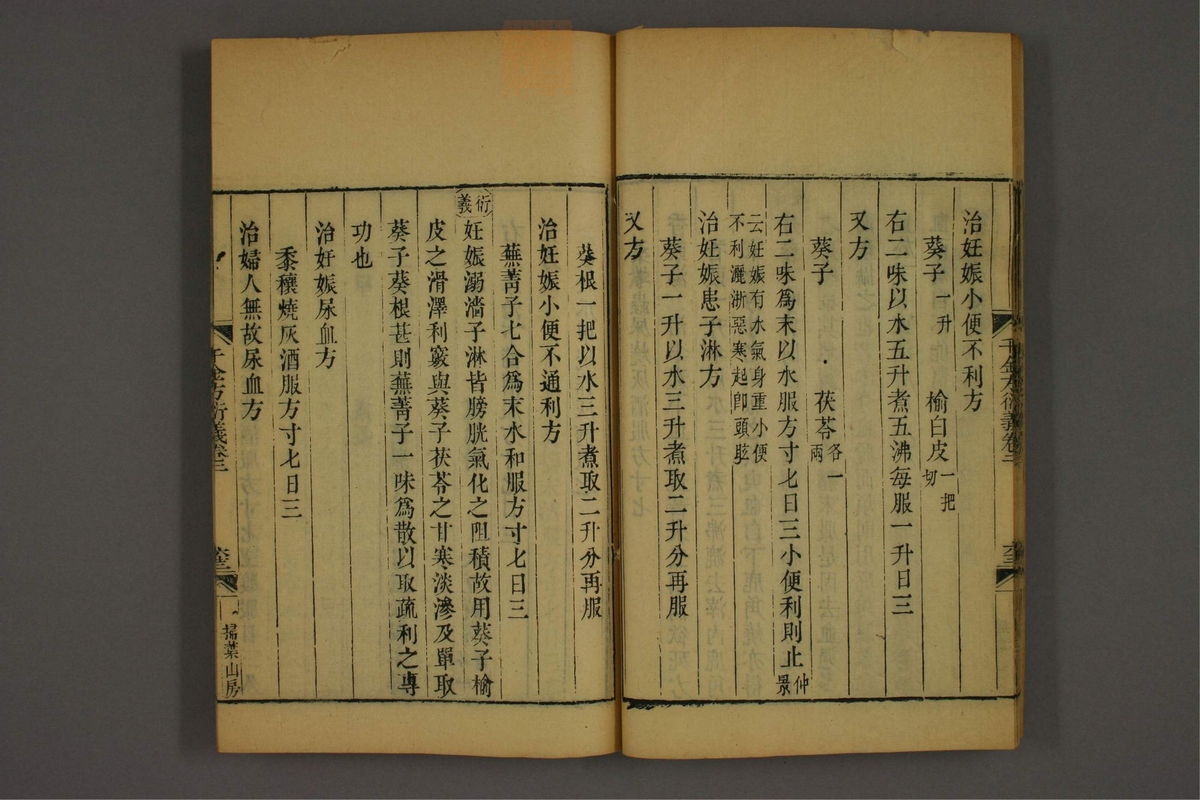 治妊娠小便不利方
葵子一升 榆白皮一把切
右二味以水五升煮五沸每服一升日三
又方
葵子 茯苓各一兩
右二味爲末以水服方寸匕日三小便利則止仲景
云妊娠有水氣身重小便
不利灑淅惡寒起卽頭眩
治妊娠患子淋方
葵子一升以水三升煮取二升分再服
又方
葵根一把以水三升煮取二升分再服
治妊娠小便不通利方
蕪菁子七合爲末水和服方寸匕日三
衍義
妊娠溺濇子淋皆膀胱氣化之阻積故用葵子榆
皮之滑澤利竅與葵子茯苓之甘寒淡滲及單取
葵子葵根甚則蕪菁子一味爲散以取疏利之專
功也
治妊娠尿血方
黍穰燒灰酒服方寸匕日三
治婦人無故尿血方
千金方衍義卷三
掃葉山房